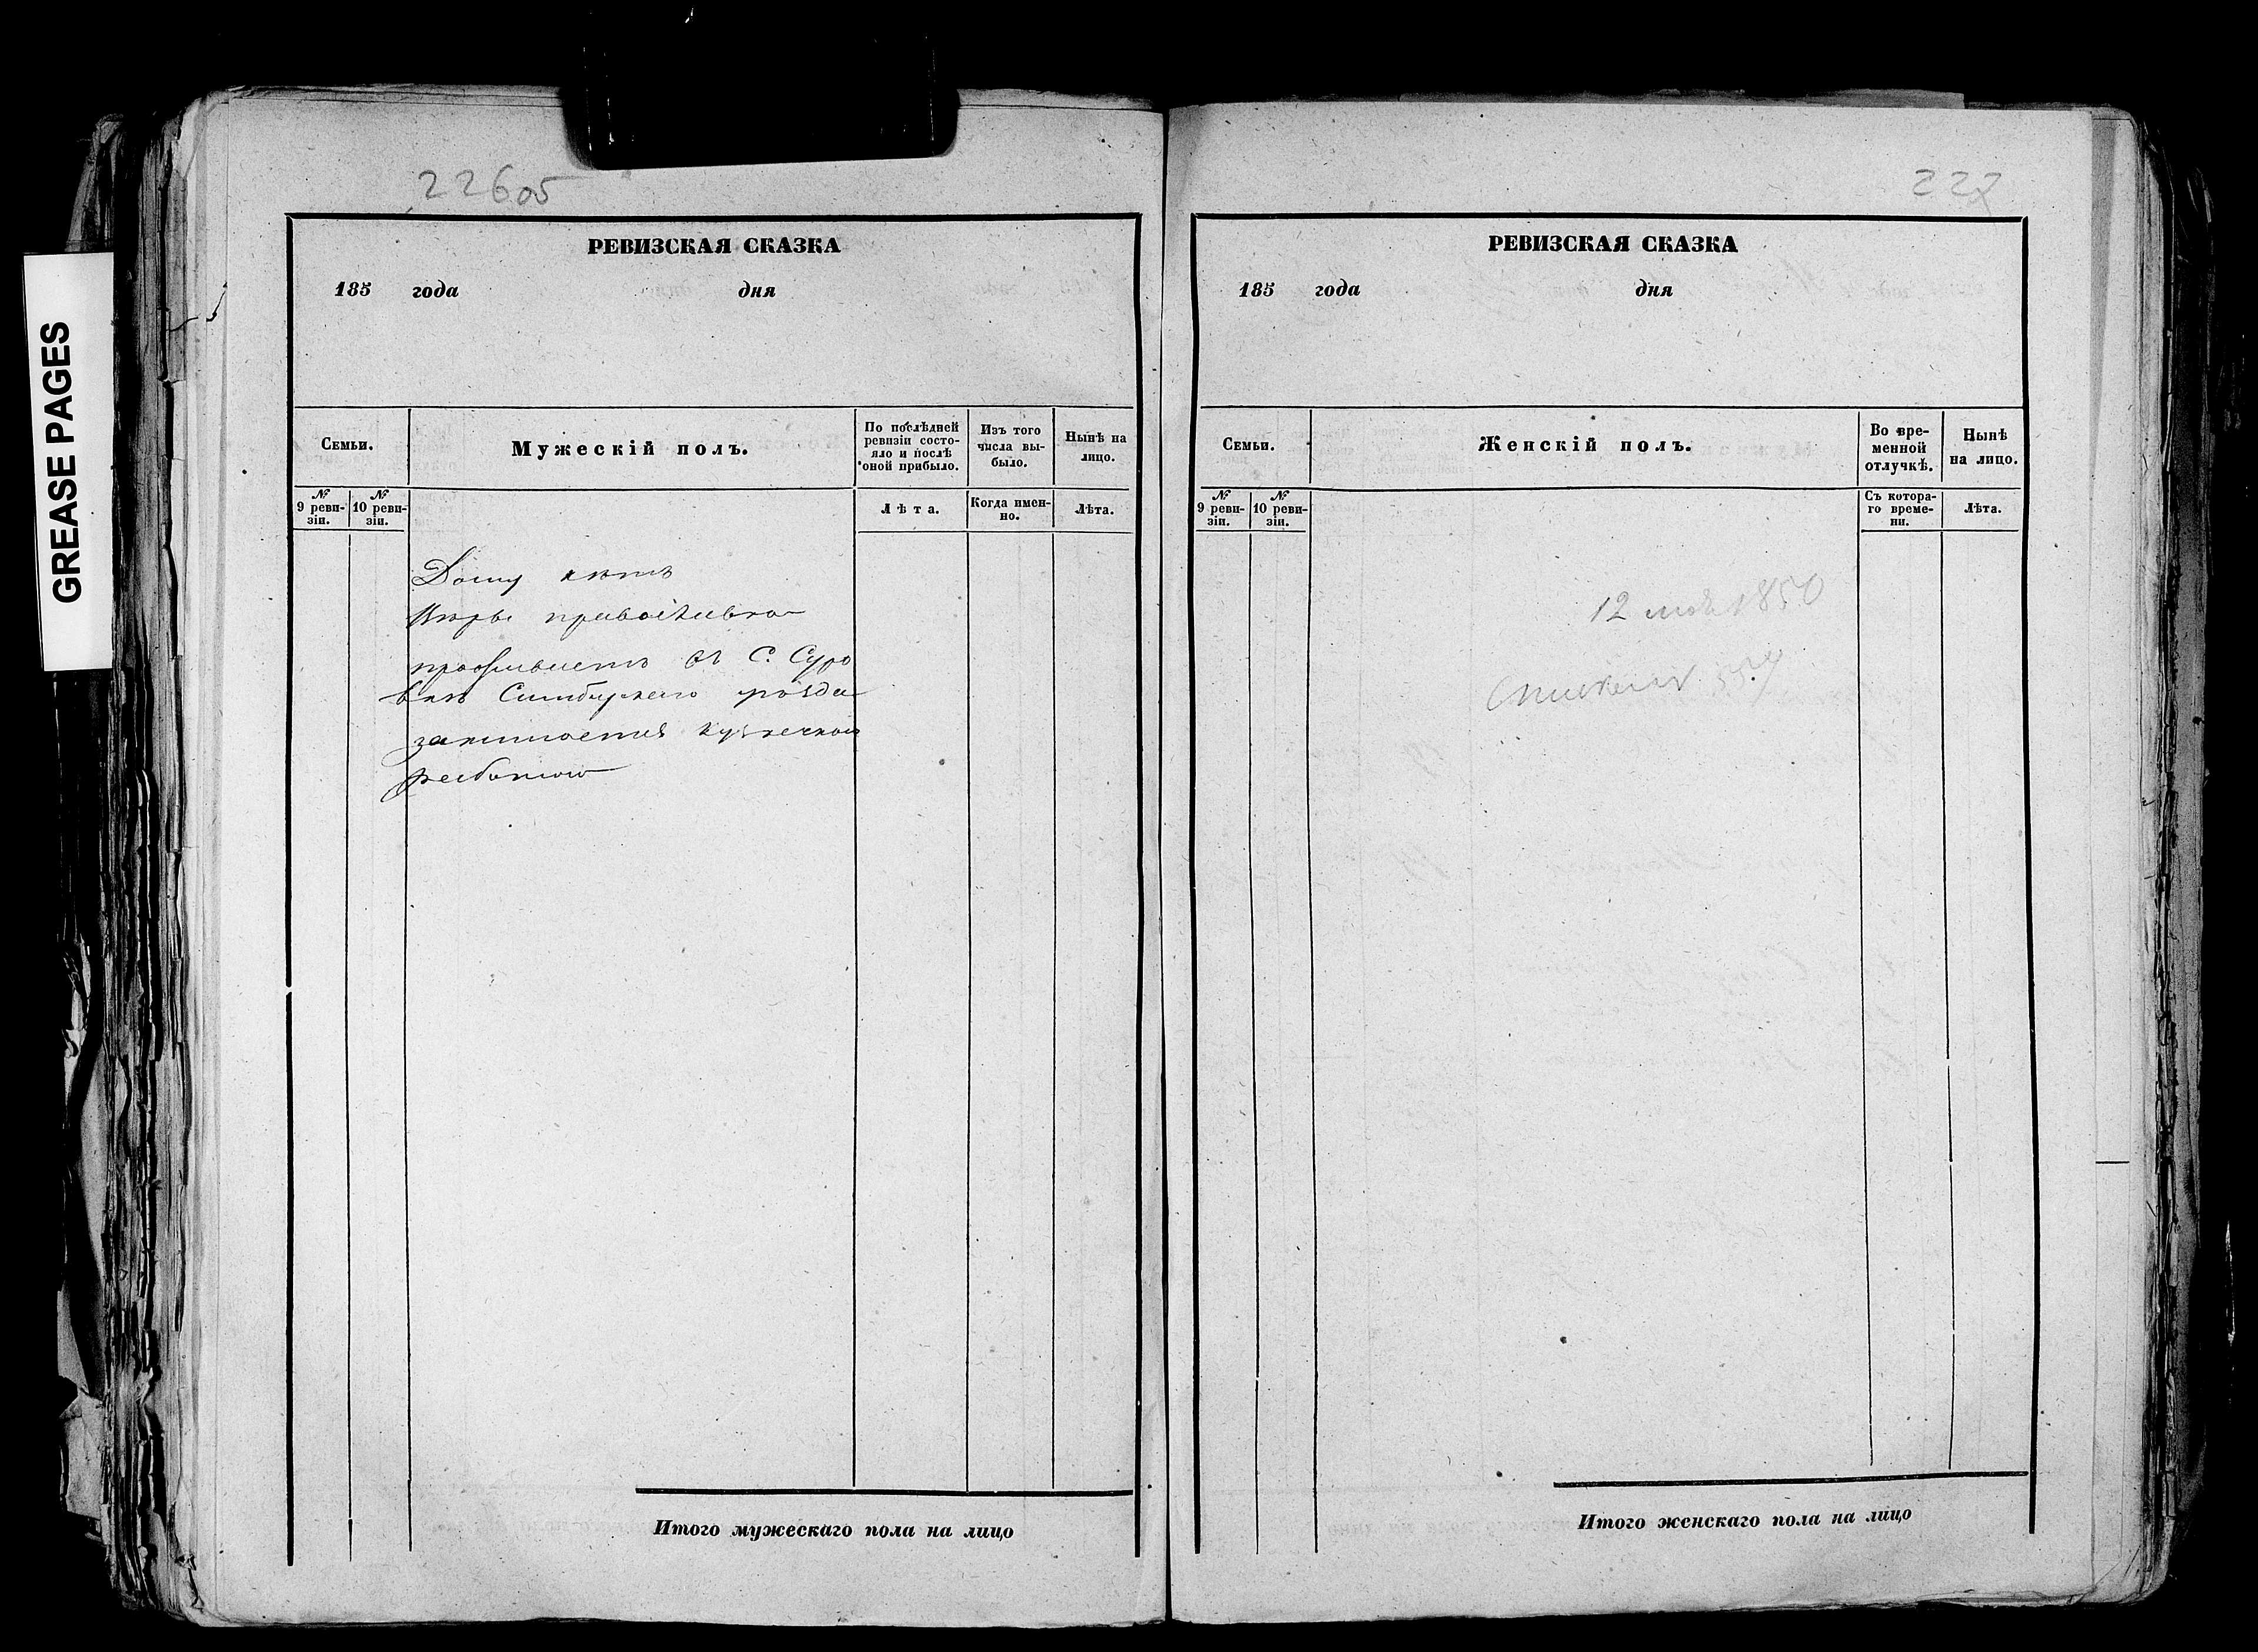 GREASE PAGES
226об
РЕВИЗСКАЯ СКАЗКА
185 года дня
Семьи.
Мужескій полъ.
По послѣдней ревизіи состояло и послѣ оной прибыло.
Изъ того числа выбыло.
Нынѣ на лицо.
№ 9 ревизіи.
№ 10 ревизіи.
Лѣта.
Когда именно.
Лѣта.
Дому нѣтъ
Вѣры православно
проживаетъ въ С. Суро
вкѣ Симбирскаго уѣзда
занимается кузнечной
работою
Итого мужескаго пола на лицо
227
РЕВИЗСКАЯ СКАЗКА
185 года дня
Семьи.
Женскій полъ.
Во временной отлучкѣ.
Нынѣ на лицо.
№ 9 ревизіи.
№ 10 ревизіи.
Съ котораго времени.
Лѣта.
12 1850
Итого женскаго пола на лицо